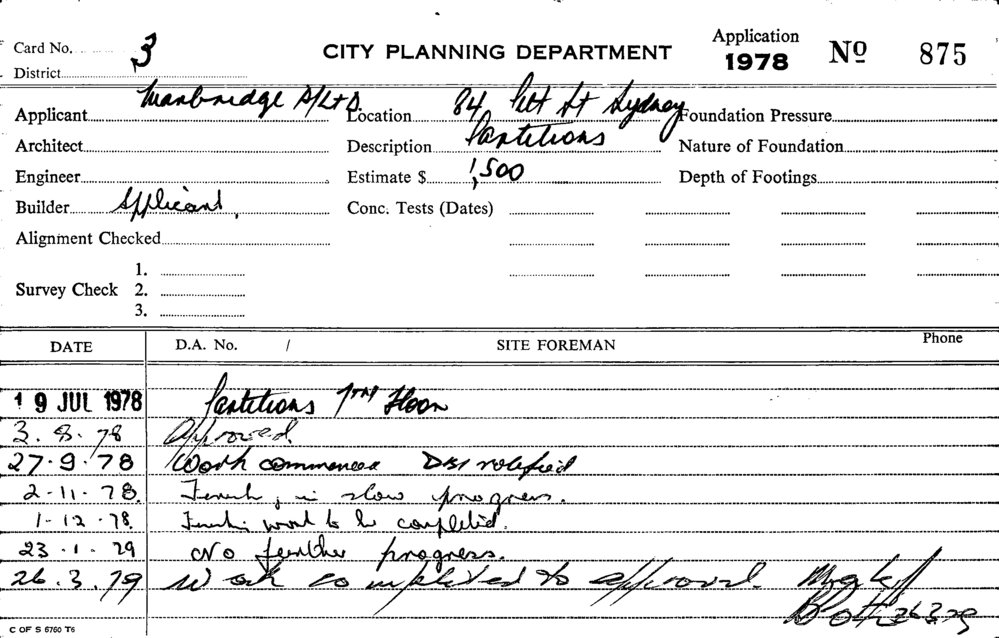 Card No. 3
CITY PLANNING DEPARTMENT
Application 1978 Nº 875
District
Applicant Warbridge P/LTD. Location 84 Pitt St Sydney Foundation Pressure
Architect Description Partitions Nature of Foundation
Engineer Estimate $ 1,500 Depth of Footings
Builder Applicant. Conc. Tests (Dates)
Alignment Checked
1.
Survey Check 2.
3.
DATE D.A. No. / SITE FOREMAN Phone
19 JUL 1978 Partitions 7TH Floor
3.8.78 Approved
27.9.78 Work commenced DBI notified
2-11-78. in slow progress.
1-12-78. Further work to be completed.
23.1.79 No further progress.
26.3.79 Work completed to approval.
26.3.79
C OF S 6760 T6